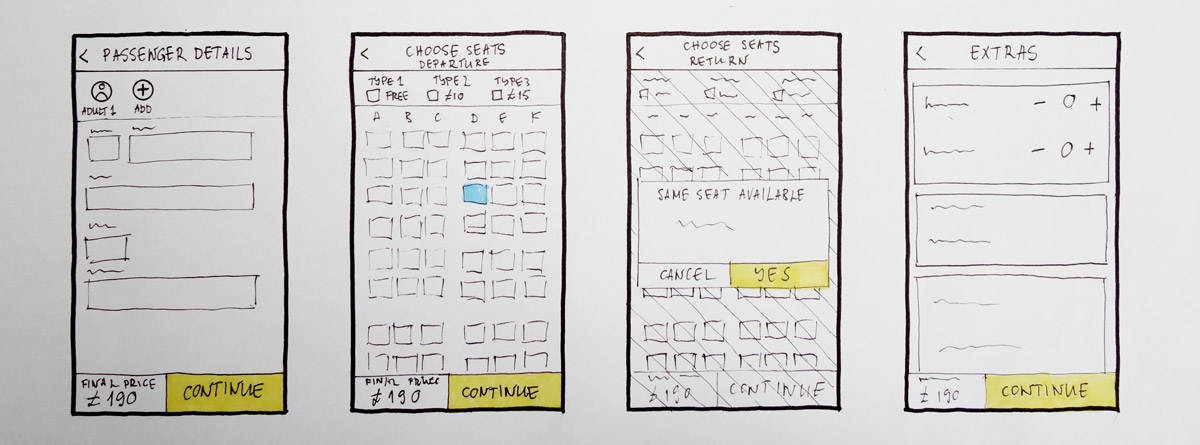 < PASSENGER DETAILS
ADULT 1 ADD
FINAL PRICE
£ 190
CONTINUE
< CHOOSE SEATS
DEPARTURE
TYPE 1 TYPE 2 TYPE 3
FREE £10 £15
A B C D E F
FINAL PRICE
£ 190
CONTINUE
< CHOOSE SEATS
RETURN
SAME SEAT AVAILABLE
CANCEL YES
£ 190
CONTINUE
< EXTRAS
- 0 +
- 0 +
£ 190
CONTINUE